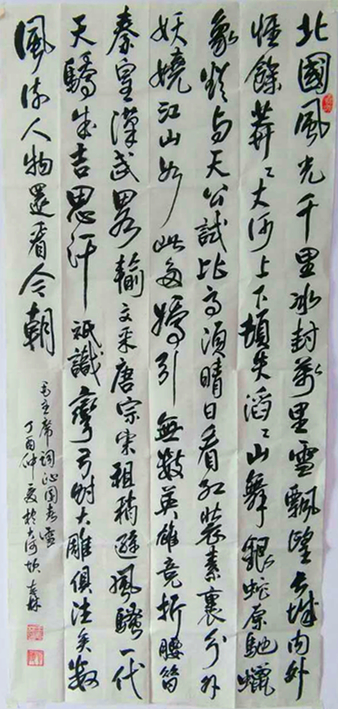 北國風光千里冰封萬里雪飄望长城内外
惟餘莽〻大河上下頓失滔〻山舞銀蛇原馳蠟
象欲与天公試比高須晴日看红装素裹分外
妖嬈江山如此多嬌引無數英雄竞折腰惜
秦皇漢武畧輸文采唐宗宋祖稍遜風騷一代
天驕成吉思汗祇識彎弓射大雕俱往矣數
風流人物還看今朝
毛主席詞沁園春雪
丁酉仲夏於